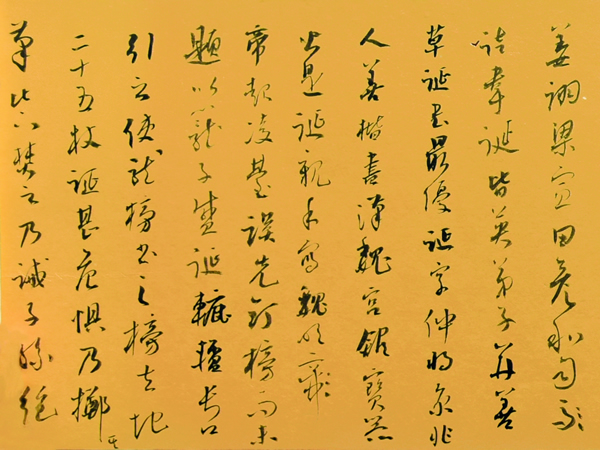 姜詡梁宣田彦和司
韋誕皆英弟子並善
草誕書最優誕字仲將京兆
人善楷書漢魏宮館寶器
皆是誕親手寫魏明
帝起凌臺誤先釘榜而未
題以籠子盛誕轆轤長
引之使就榜書之榜去地
二十五杖誕甚危懼乃擲其
筆比下焚之乃誡子孫絕